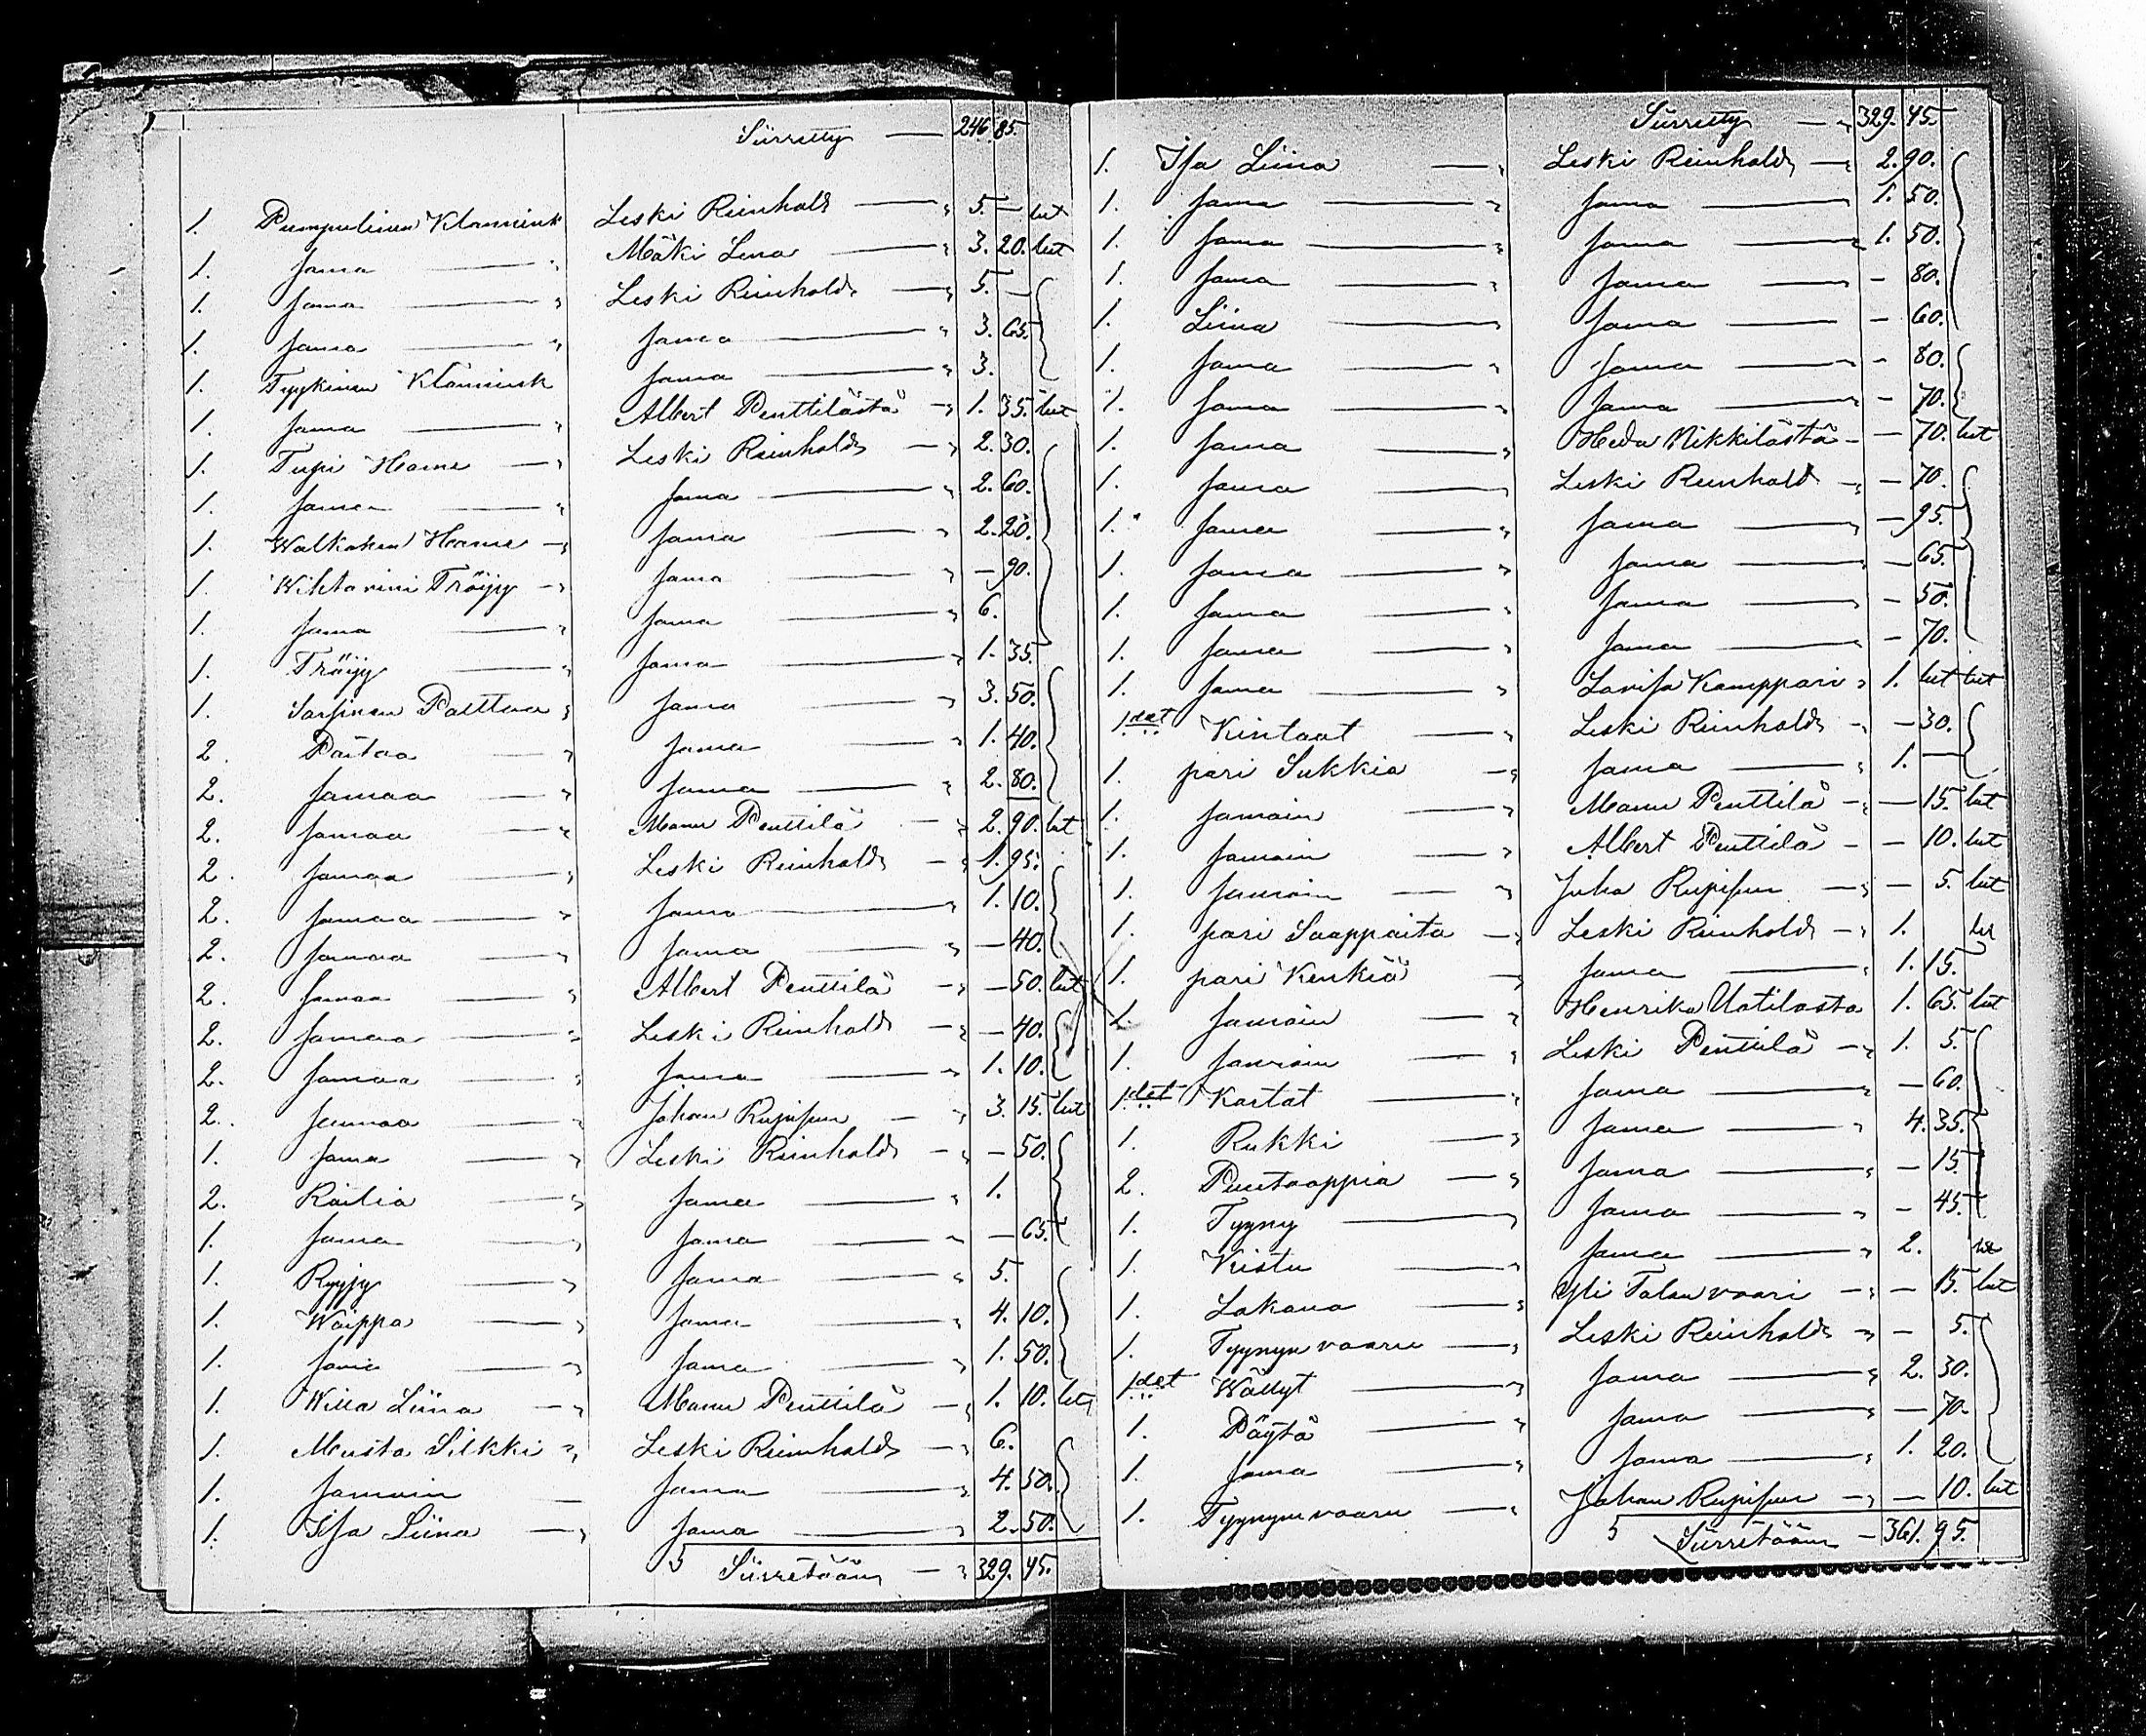 Siirretty — 246 85.
1. Pumpulinen Klannink Leski Reinhold — " 5. — lut
1. sama — " Mäki Lena — " 3. 20. lut
1. sama — " Leski Reinhold — " 5. —
1. sama — " sama — " 3. 65.
1. Tyykinen Klännink sama — " 3.
1. sama — " Albert Penttilästä — " 1. 35. lut
1. Tupi Hame — " Leski Reinhold — " 2. 30.
1. sama — " sama — " 2. 60.
1. Walkonen Hame — " sama — " 2. 20.
1. Wihta vini Tröijy — " sama — " — 90.
1. sama — " sama — " 6.
1. Tröijy — " sama — " 1. 35.
1. Sarsinen Palttoa " sama — " 3. 50.
2. Paitaa — " sama — " 1. 40.
2. samaa — " sama — " 2. 80.
2. samaa — " Manu Penttilä — " 2. 90. lut
2. samaa — " Leski Reinhold — " 1. 95.
2. samaa — " sama — " 1. 10.
2. samaa — " sama — " — 40.
2. samaa — " Albert Penttilä — " — 50. lut
2. samaa — " Leski Reinhold — " — 40.
2. samaa — " sama — " 1. 10.
2. samaa — " Johan Rupisen — " 3. 15. lut
1. sama — " Leski Reinhold — " — 50.
2. Raitia — " sama — " 1.
1. sama — " sama — " — 65.
1. Ryyjy — " sama — " 5.
1. Waippa — " sama — " 4. 10.
1. sama — " sama — " 1. 50.
1. Willa Liina — " Manu Penttilä — " 1. 10. lut
1. Musta Silkki " Leski Reinhold — " 6.
1. samain — sama — " 4. 50.
1. Isa Liina — " sama — " 2. 50.
S Siirretään — " 329. 45.
Siirretty — " 329. 45.
1. Isa Liina — " Leski Reinhold — " 2. 90.
1. sama — " sama — 1. 50.
1. sama — " sama — " 1. 50.
1. sama — " sama — — 80.
1. Liina — " sama — — 60.
1. sama — " sama — " — 80.
1. sama — " sama — " — 70.
1. sama — " Heda Nikkilästä — — 70. lut
1. sama — " Leski Reinhold — " — 70.
1. sama — " sama — " — 95.
1. sama — " sama — " — 65.
1. sama — " sama — " — 50.
1. sama — " sama — " — 70.
1. sama — " Lovisa Kamppari " 1. lut lut
1. det Kintaat — " Leski Reinhold — " — 30.
1. pari Sukkia — " sama — " 1. —
1. samain — " Manu Penttilä — " — 15. lut
1. samain — " Albert Penttilä — — 10. lut
1. samain — " Juha Rupisen — " — 5. lut
1. pari Saappaita — " Leski Reinhold — " 1. lut
1. pari Kenkiä — " sama — " 1. 15.
1. samain — " Henrika Uotilasta 1. 65. lut
1. samain — " Leski Penttilä — " 1. 5.
1. det Kartat — " sama — " — 60.
1. Rukki — " sama — " 4. 35.
2. Puntaappia — " sama — " — 15.
1. Tyyny — " sama — " — 45.
1. Kistu — " sama — " 2. lut
1. Lakana — " Yli Talan vaari — " — 15. lut
1. Tyynyn vaaru — " Leski Reinhold — " — 5.
1. det Wällyt — " sama — " 2. 30.
1. Päytä — " sama — " — 70.
1. sama — " sama — " 1. 20.
1. Tyynyn vaaru — " Johan Rupisen — " — 10. lut
S Siirretään — 361. 95.